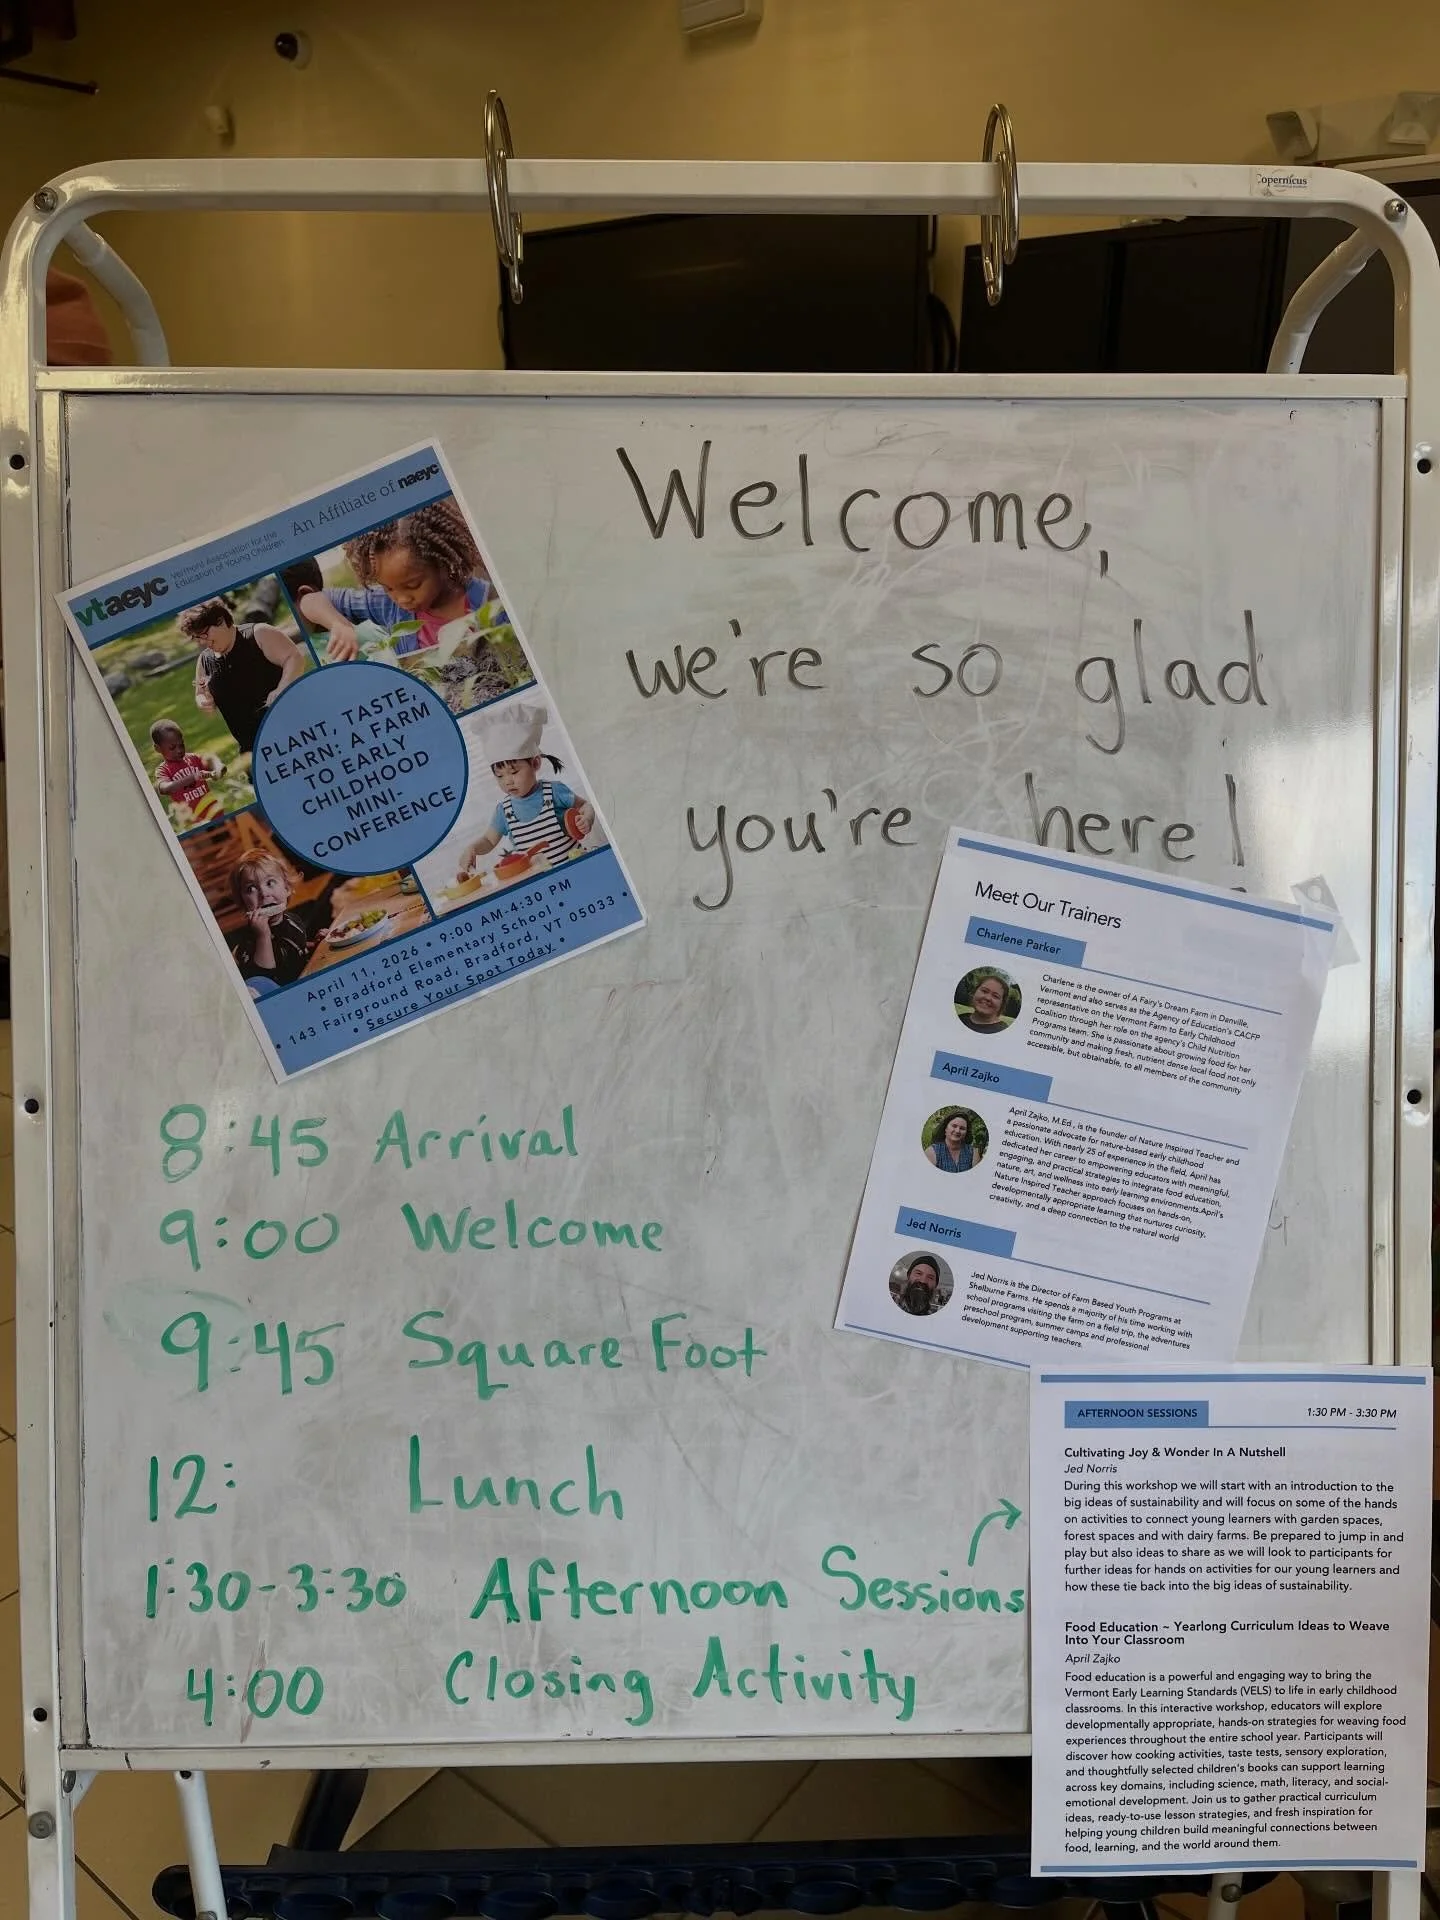 Copernicus
Welcome,
we're so glad
you're here!
vtaeyc
Vermont Association for the
Education of Young Children
An Affiliate of naeyc
PLANT, TASTE,
LEARN: A FARM
TO EARLY
CHILDHOOD
MINI-
CONFERENCE
April 11, 2026 • 9:00 AM-4:30 PM
• Bradford Elementary School •
143 Fairground Road, Bradford, VT 05033 •
• Secure Your Spot Today •
8:45 Arrival
9:00 Welcome
9:45 Square Foot
12: Lunch
1:30-3:30 Afternoon Sessions
4:00 Closing Activity
Meet Our Trainers
Charlene Parker
Charlene is the owner of A Fairy's Dream Farm in Danville,
Vermont and also serves as the Agency of Education's CACFP
representative on the Vermont Farm to Early Childhood
Coalition through her role on the agency's Child Nutrition
Programs team. She is passionate about growing food for her
community and making fresh, nutrient dense local food not only
accessible, but obtainable, to all members of the community
April Zajko
April Zajko, M.Ed., is the founder of Nature Inspired Teacher and
a passionate advocate for nature-based early childhood
education. With nearly 25 of experience in the field, April has
dedicated her career to empowering educators with meaningful,
engaging, and practical strategies to integrate food education,
nature, art, and wellness into early learning environments.April's
Nature Inspired Teacher approach focuses on hands-on,
developmentally appropriate learning that nurtures curiosity,
creativity, and a deep connection to the natural world
Jed Norris
Jed Norris is the Director of Farm Based Youth Programs at
Shelburne Farms. He spends a majority of his time working with
school programs visiting the farm on a field trip, the adventures
preschool program, summer camps and professional
development supporting teachers.
AFTERNOON SESSIONS 1:30 PM - 3:30 PM
Cultivating Joy & Wonder In A Nutshell
Jed Norris
During this workshop we will start with an introduction to the
big ideas of sustainability and will focus on some of the hands
on activities to connect young learners with garden spaces,
forest spaces and with dairy farms. Be prepared to jump in and
play but also ideas to share as we will look to participants for
further ideas for hands on activities for our young learners and
how these tie back into the big ideas of sustainability.
Food Education ~ Yearlong Curriculum Ideas to Weave
Into Your Classroom
April Zajko
Food education is a powerful and engaging way to bring the
Vermont Early Learning Standards (VELS) to life in early childhood
classrooms. In this interactive workshop, educators will explore
developmentally appropriate, hands-on strategies for weaving food
experiences throughout the entire school year. Participants will
discover how cooking activities, taste tests, sensory exploration,
and thoughtfully selected children's books can support learning
across key domains, including science, math, literacy, and social-
emotional development. Join us to gather practical curriculum
ideas, ready-to-use lesson strategies, and fresh inspiration for
helping young children build meaningful connections between
food, learning, and the world around them.